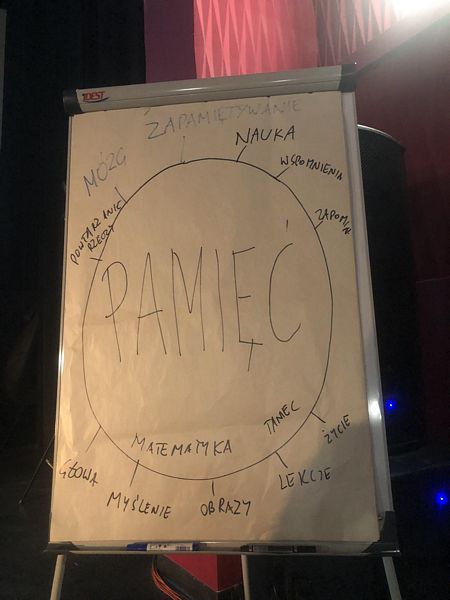 ZAPAMIĘTYWANIE
NAUKA
MÓZG
WSPOMNIENIA
POWTARZANIE
RZECZY
ZAPOMIN
PAMIĘĆ
TANIEC
ŻYCIE
MATEMATYKA
GŁOWA
LEKCJE
MYŚLENIE
OBRAZY